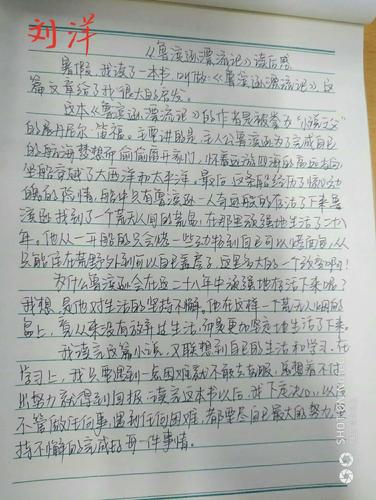 刘洋
《鲁滨逊漂流记》读后感
暑假,我读了一本书,叫做《鲁滨逊漂流记》这
篇文章给了我很大的启发。
这本《鲁滨逊漂流记》的作者是被誉为“小说之父”
的展丹尼尔·笛福。主要讲的是:主人公鲁滨逊为了完成自己
的航海梦想而偷偷离开家门,怀着远游四海的高远志向,
坐船穿越了大西洋和太平洋。最后这条船经历了惊心动
魄的险情,船中只有鲁滨逊一人奇迹般的存活了下来鲁
滨逊找到了一个荒无人烟的荒岛,在那里顽强地生活了二十八
年。他从一开始的只会
到自己可以
只能住在荒野外到可以自己盖房子,这是多大的一个改变啊!
为什么鲁滨逊会在这二十八年中顽强地存活下来呢?
我想,是他对生活的坚持不懈。他在这样一个荒无人烟的
岛上,看从来没有放弃过生活,而是更加坚定地生活了下来。
我读完这篇小说,又联想到自己的生活和学习。在
学习上,我只要遇到一点困难就不敢去克服,总想着不付
出努力就得到回报。读完这本书以后,我下定决心,以后
不管做任何事,遇到任何困难,都要尽自己最大的努力,坚
持不懈的完成好每一件事情。
SHOT ON